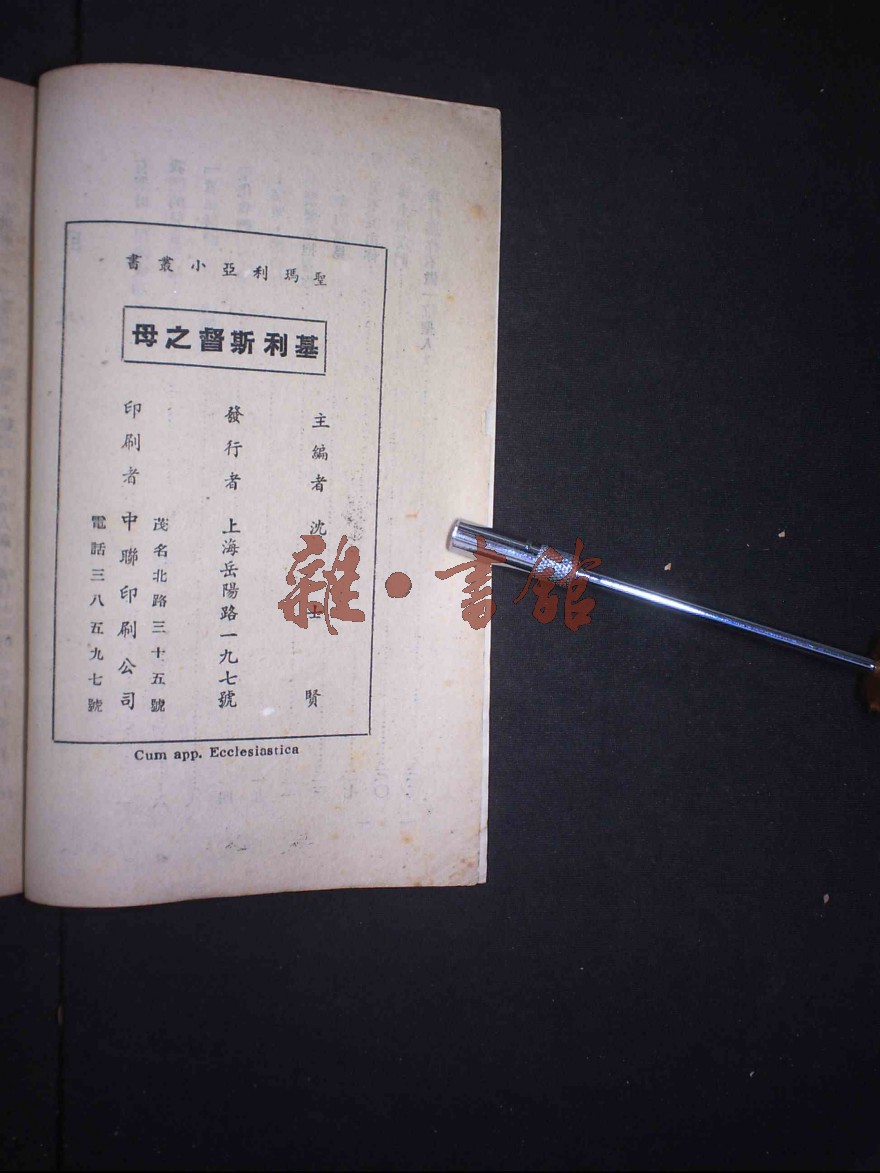 聖瑪利亞小叢書
基利斯督之母
主編者 沈士賢
發行者 上海岳陽路一九七號
茂名北路三十五號
印刷者 中聯印刷公司
電話三八五九七號
Cum app. Ecclesiastica
雜·書館